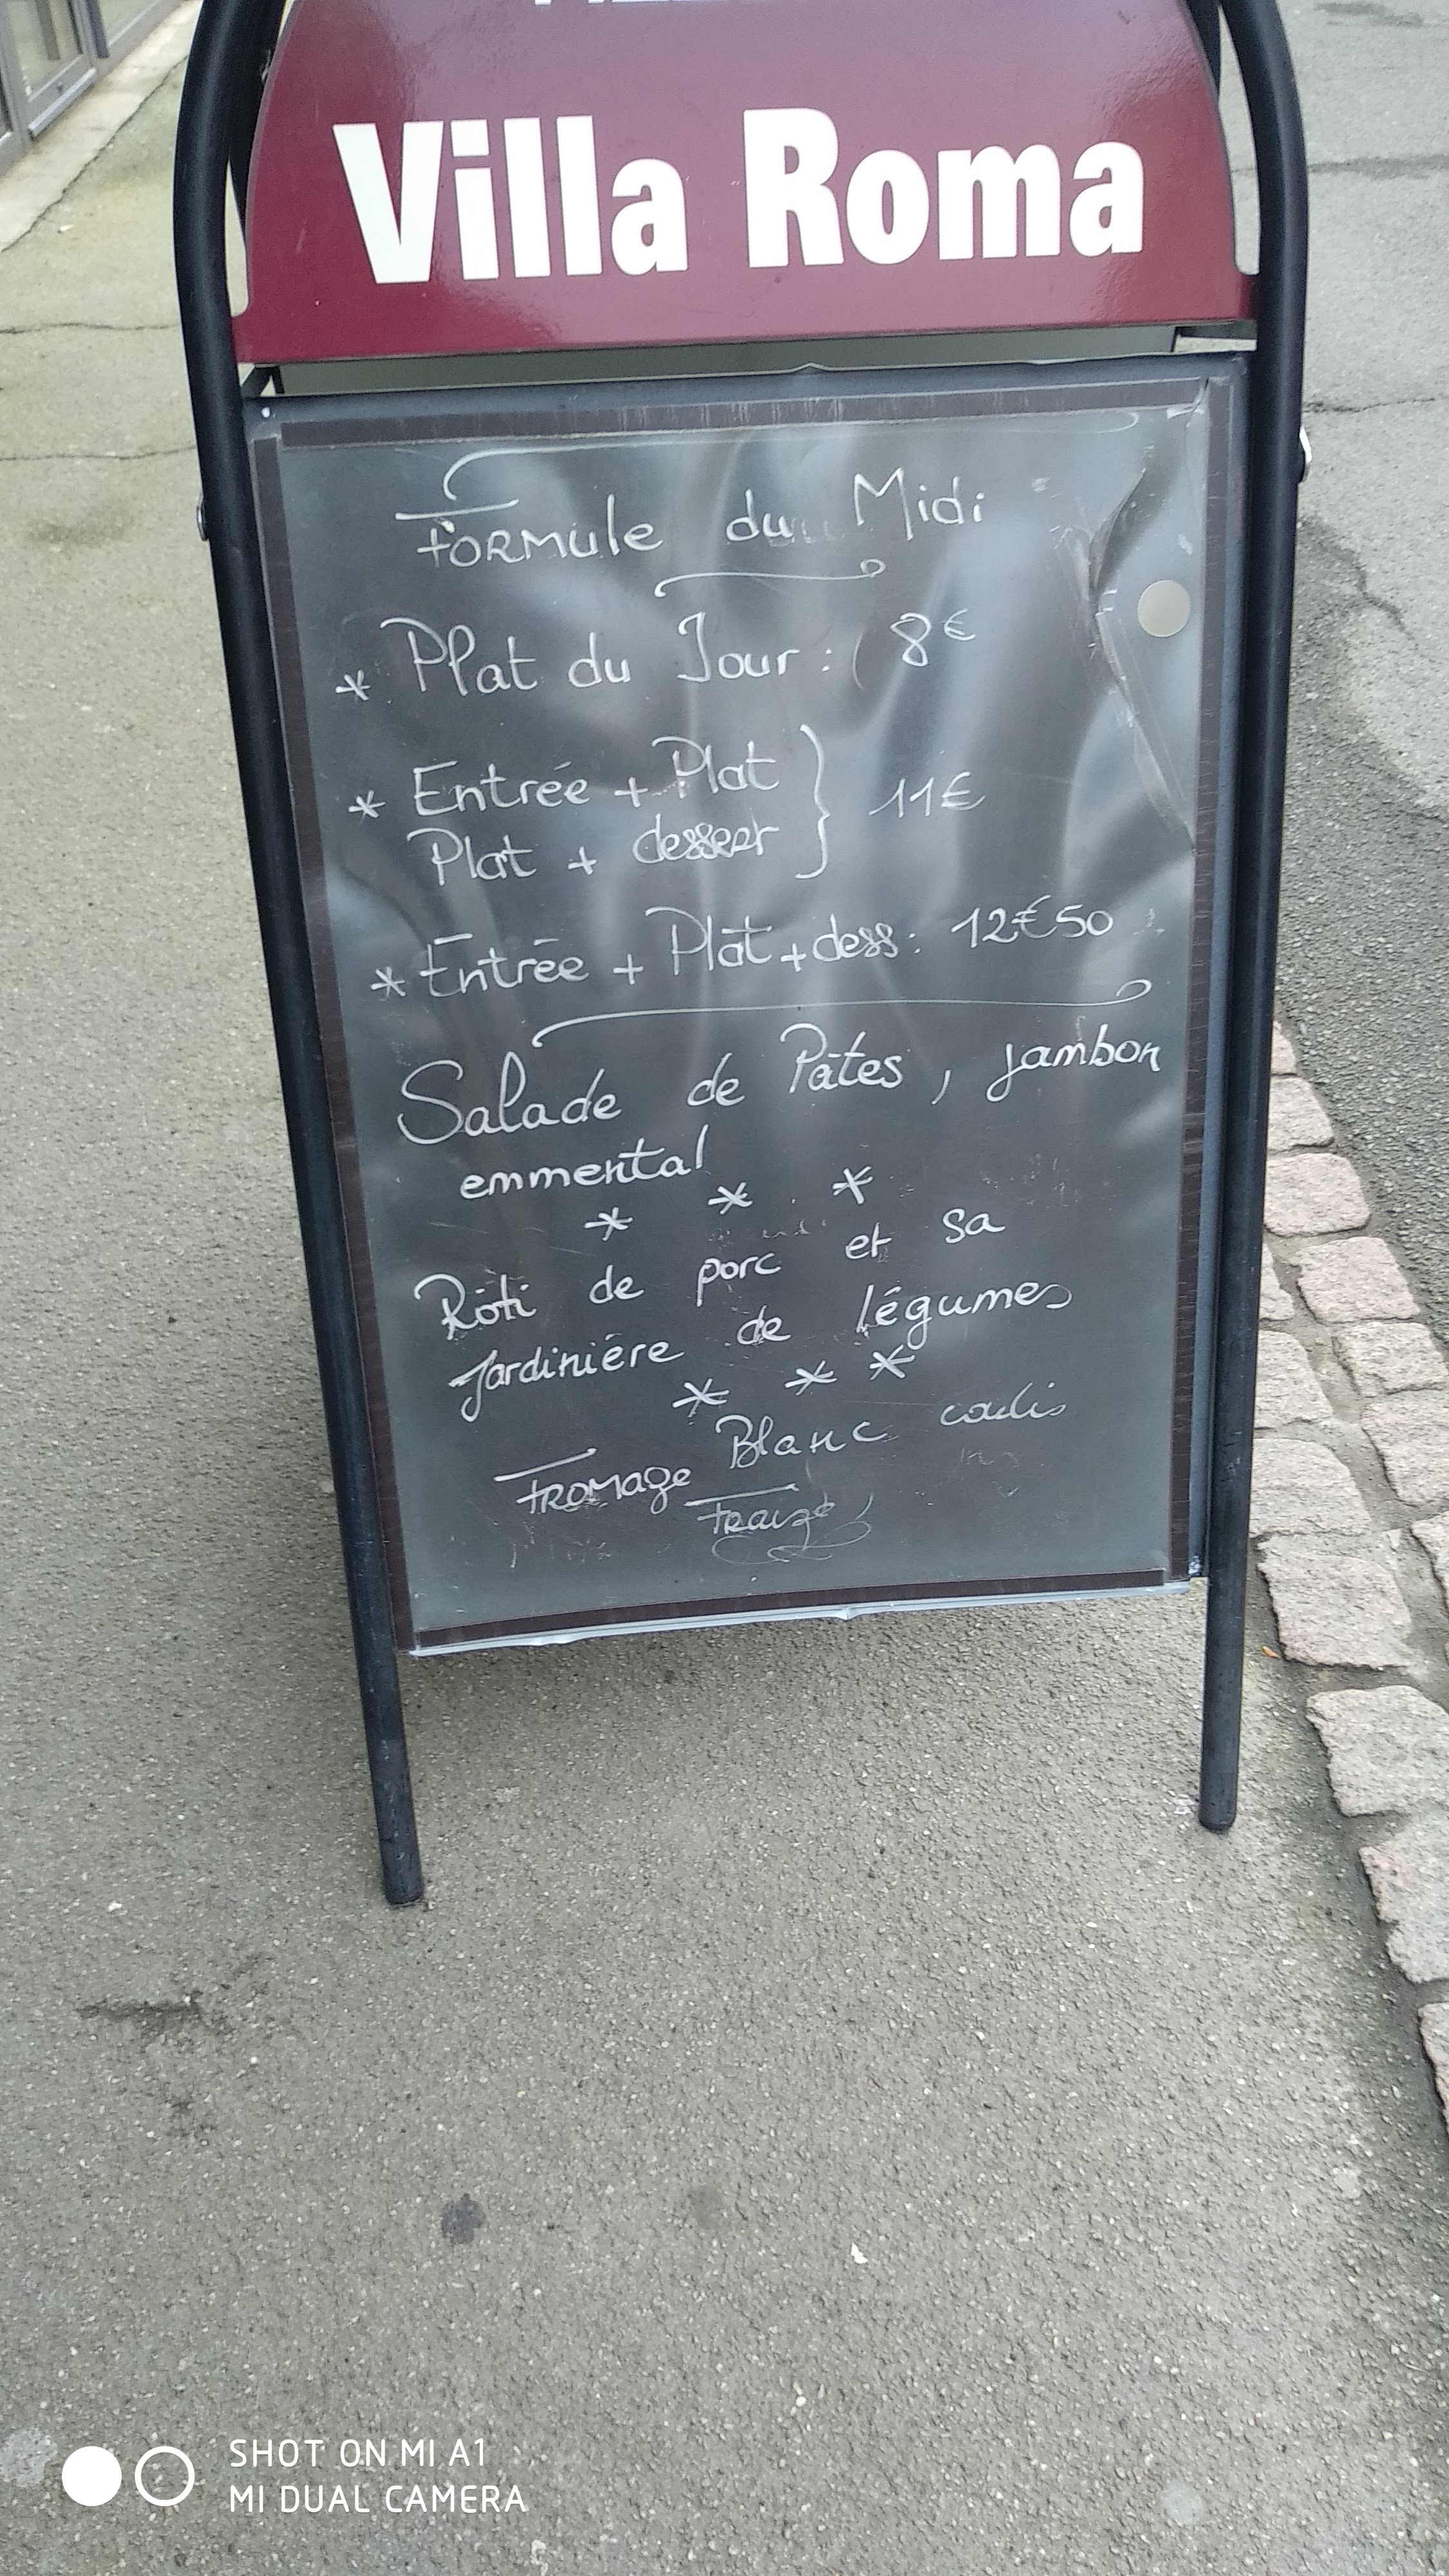 Villa Roma
Formule du Midi
* Plat du Jour : 8€
* Entrée + Plat
Plat + dessert } 11€
* Entrée + Plat + dess : 12€50
Salade de Pâtes, jambon
emmental
* * *
Rôti de porc et sa
Jardinière de légumes
* * *
Fromage Blanc coulis
Fraise
SHOT ON MI A1
MI DUAL CAMERA